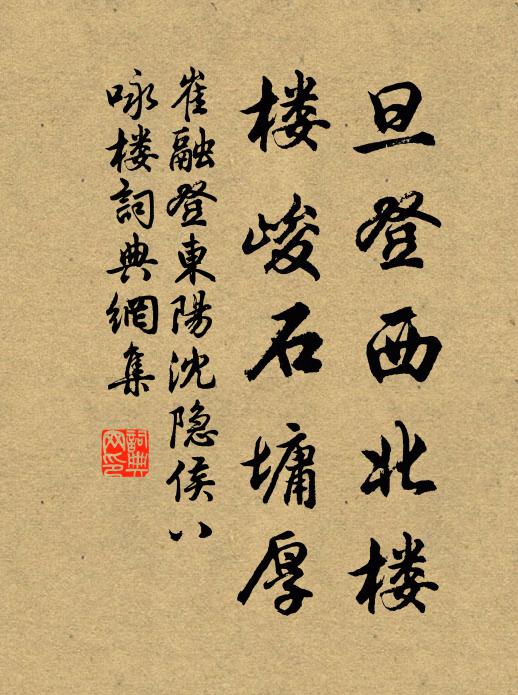 旦登西北楼
楼峻石墉厚
崔融登東陽沈隐侯八
咏楼詞典網集
詞典網印